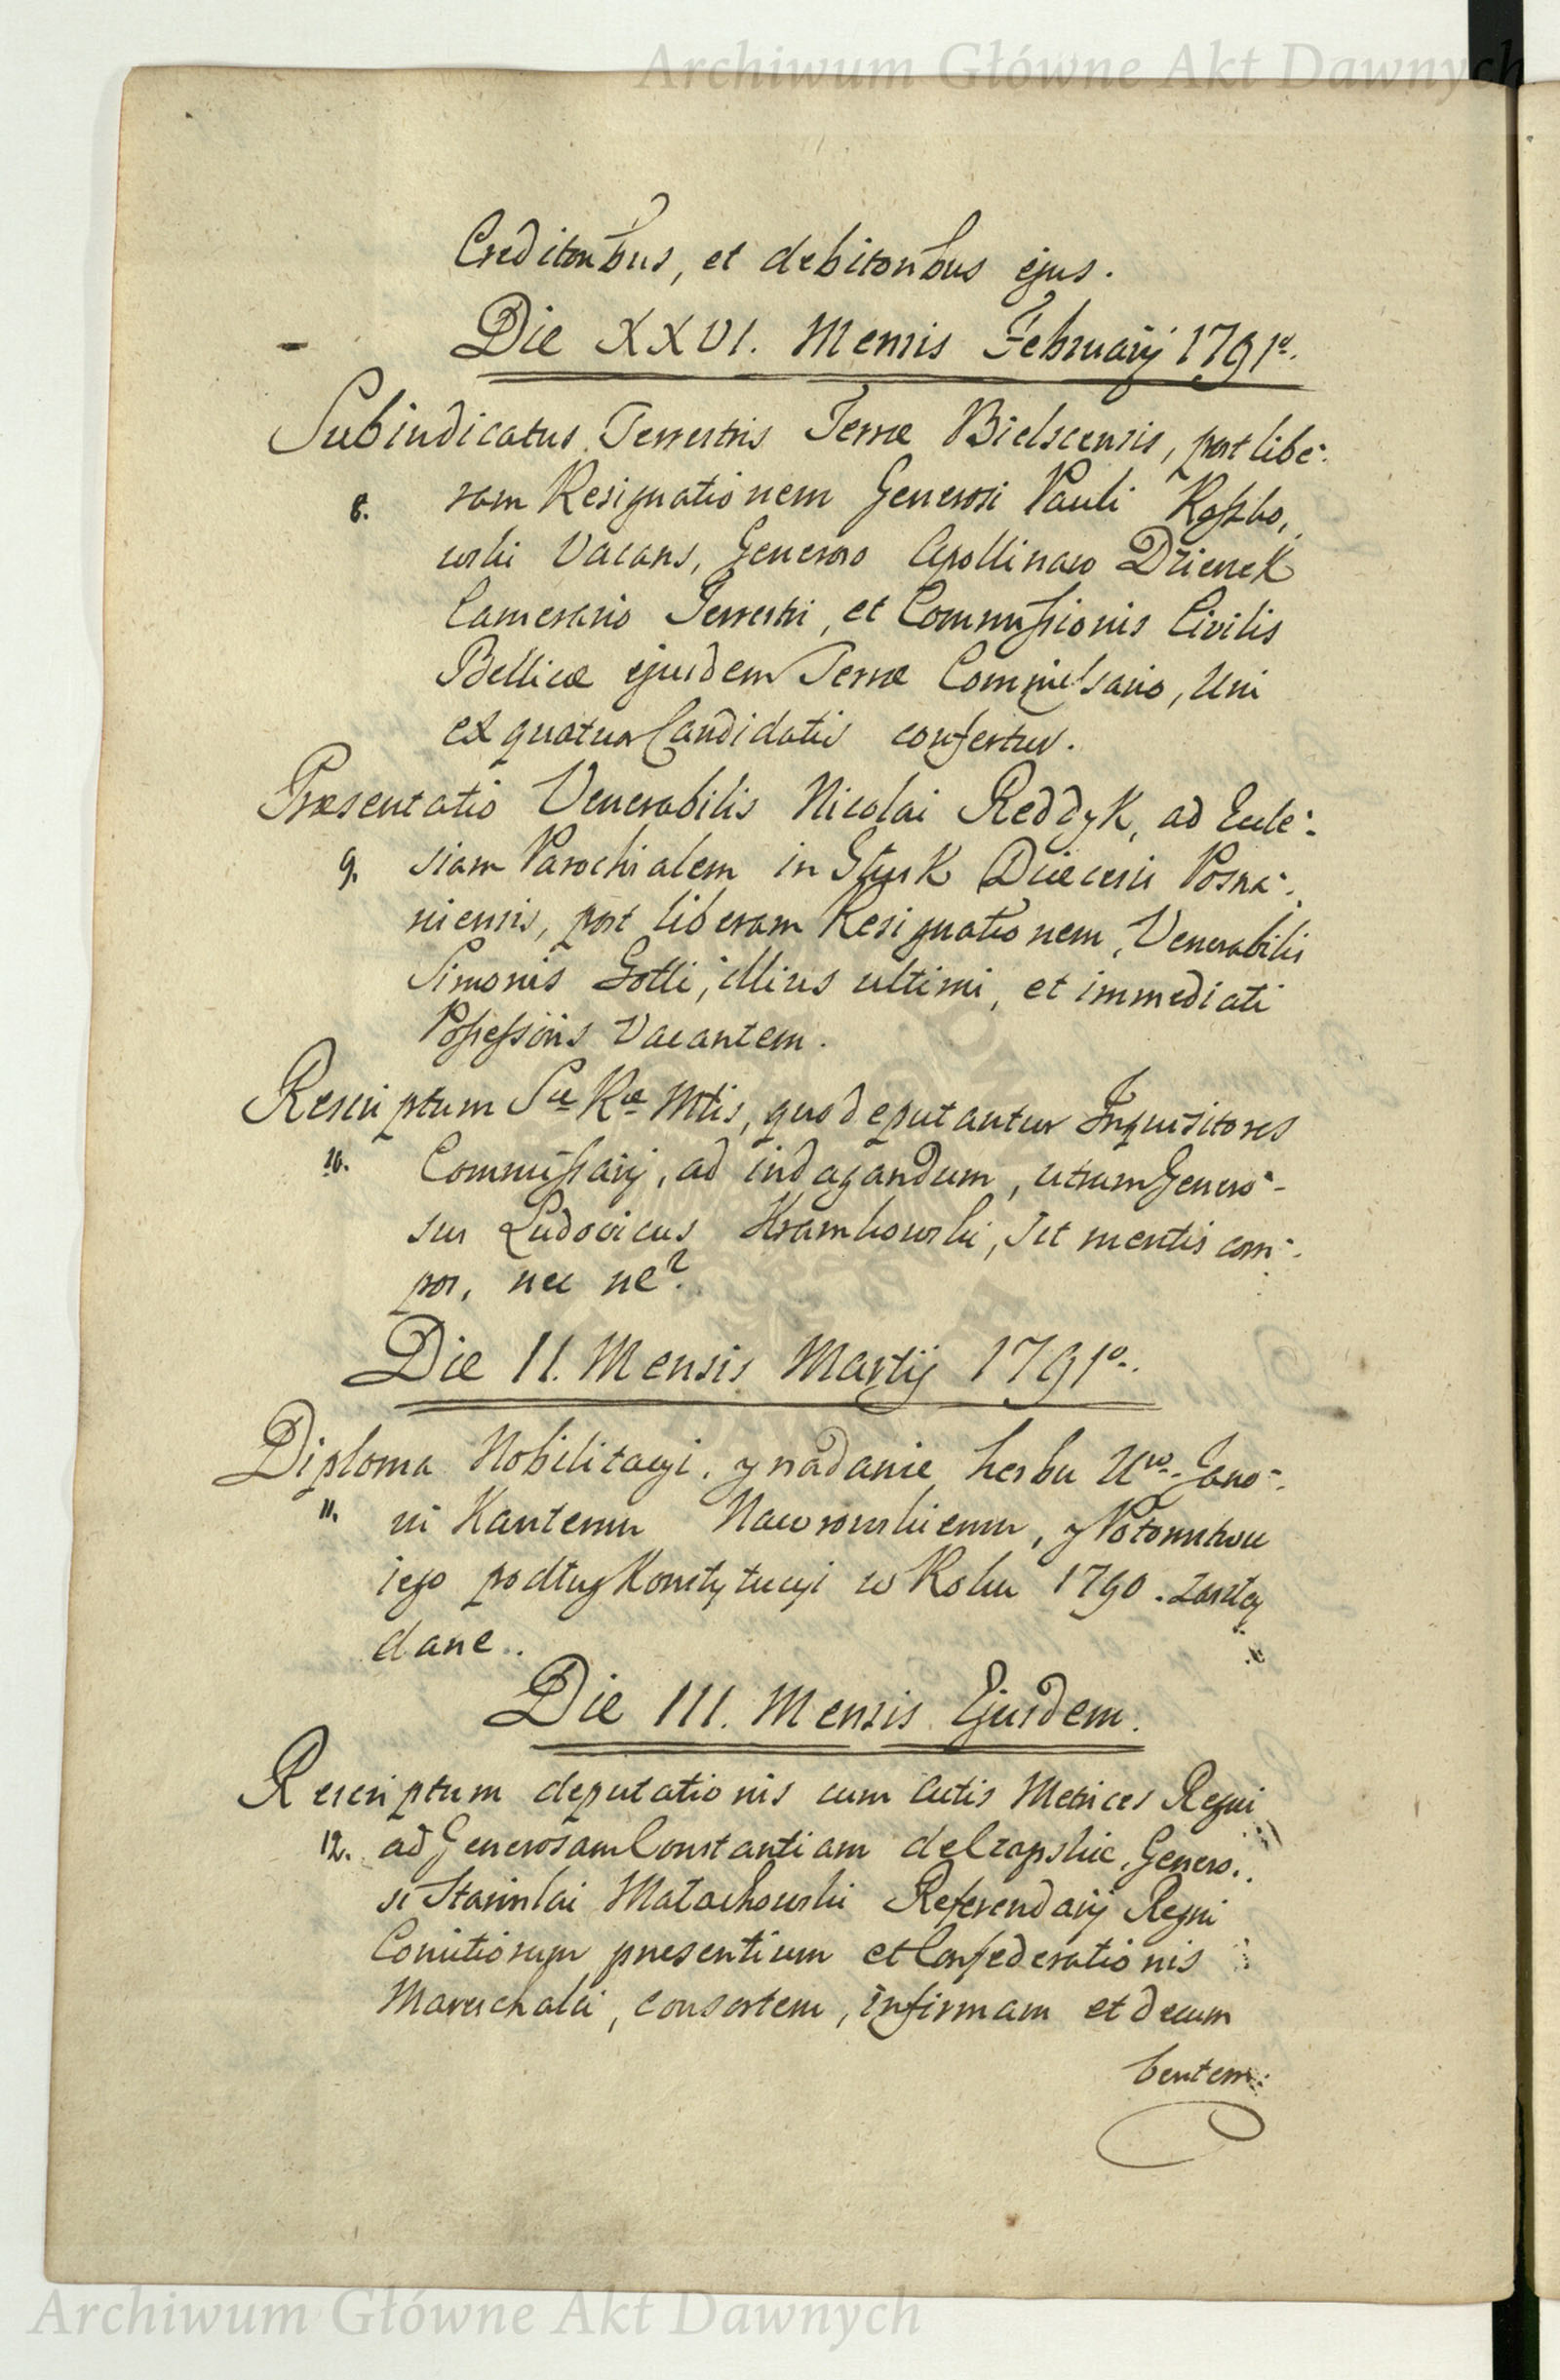 Archiwum Główne Akt Dawnych
Creditoribus, et debitoribus ejus.
Die XXVI. Mensis Februarij 1791o.
Subiudicatus Terrestris Terræ Bielscensis, post libe-
8. ram Resignationem Generosi Pauli
wski Vacans, Generoso Apollinaro Dzienek
Camerario Terrestri, et Commissionis Civilis
Bellicæ ejusdem Terræ Commissario, Uni
ex quatuor Candidatis confertur.
Præsentatio Venerabilis Nicolai Reddyk, ad Eccle-
9. siam Parochialem in Diœcesis Posna-
niensis, post liberam Resignationem, Venerabilis
Simonis Gotti, illius ultimi, et immediati
Possessoris Vacantem.
Rescriptum Sæ Ræ Mtis, quo deputantur Inquisitores
10. Commissarij, ad indagandum, utrum Genero-
sus Ludovicus Krambowski, sit mentis com-
pos, nec ne?
Die II. Mensis Martij 1791o.
Diploma Nobilitacyi, y nadanie herbu Uro. Jano-
11. wi Kantemu Nawrowskiemu, y Potomkom
iego podług Konstytucyi w Roku 1790. zaszłey
dane.
Die III. Mensis Ejusdem.
Rescriptum deputationis cum Actis Metrices Regni
12. ad Generosam Constantiam de Czapskie, Genero-
si Stanislai Małachowski Referendarij Regni
Comitiorum præsentium et Confederationis
Mareschalci, consortem, infirmam et decum
bentem:
Archiwum Główne Akt Dawnych